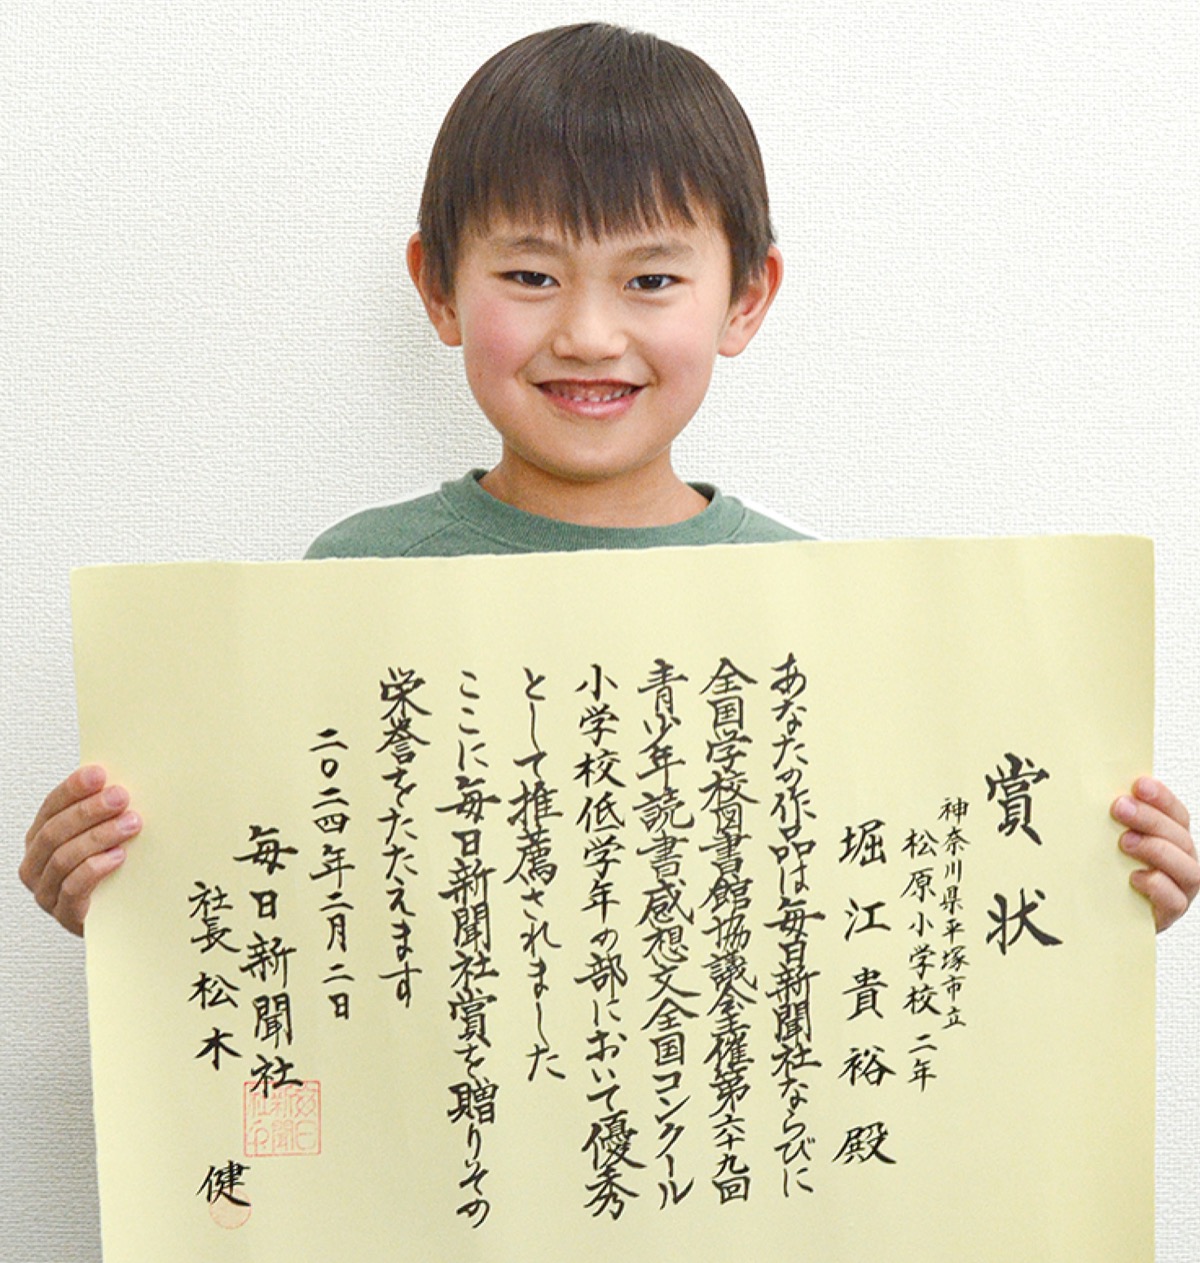 賞状
神奈川県平塚市立
松原小学校 二年
堀江貴裕殿
あなたの作品は毎日新聞社ならびに
全国学校図書館協議会主催第六十九回
青少年読書感想文全国コンクール
小学校低学年の部において優秀
として推薦されました
ここに毎日新聞社賞を贈りその
栄誉をたたえます
二〇二四年二月二日
毎日新聞社
社長 松木 健